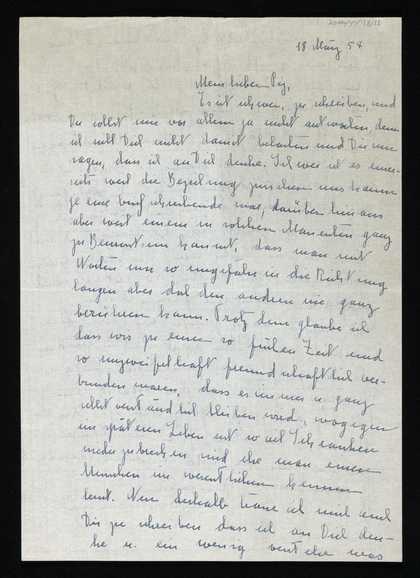 18 März 54
Mein lieber Pig,
Es ist schwer, zu schreiben, und
Du sollst mir vor allem ja nicht antworten, denn
ich will Dich nicht damit belasten und Dir nur
sagen, dass ich an Dich denke. Schwer ist es einer-
seits weil die Beziehung zwischen uns kaum
je eine briefschreibende war, darüber hinaus
aber weil einem in solchen Momenten ganz
zu Bewusstsein kommt, dass man mit
Worten nur so ungefähr in die Richtung
langen aber doch den andern nie ganz
erreichen kann. Trotzdem glaube ich
dass wir zu einer so frühen Zeit und
so unzweifelhaft freundschaftlich ver-
bunden waren, dass es immer u. ganz
selbstverständlich bleiben wird, wogegen
im späteren Leben erst so viel Schranken
niederzubrechen sind ehe man einen
Menschen im wesentlichen kennen
lernt. Nur deshalb traue ich mich auch
Dir zu schreiben dass ich an Dich den-
ke u. ein wenig verstehe was